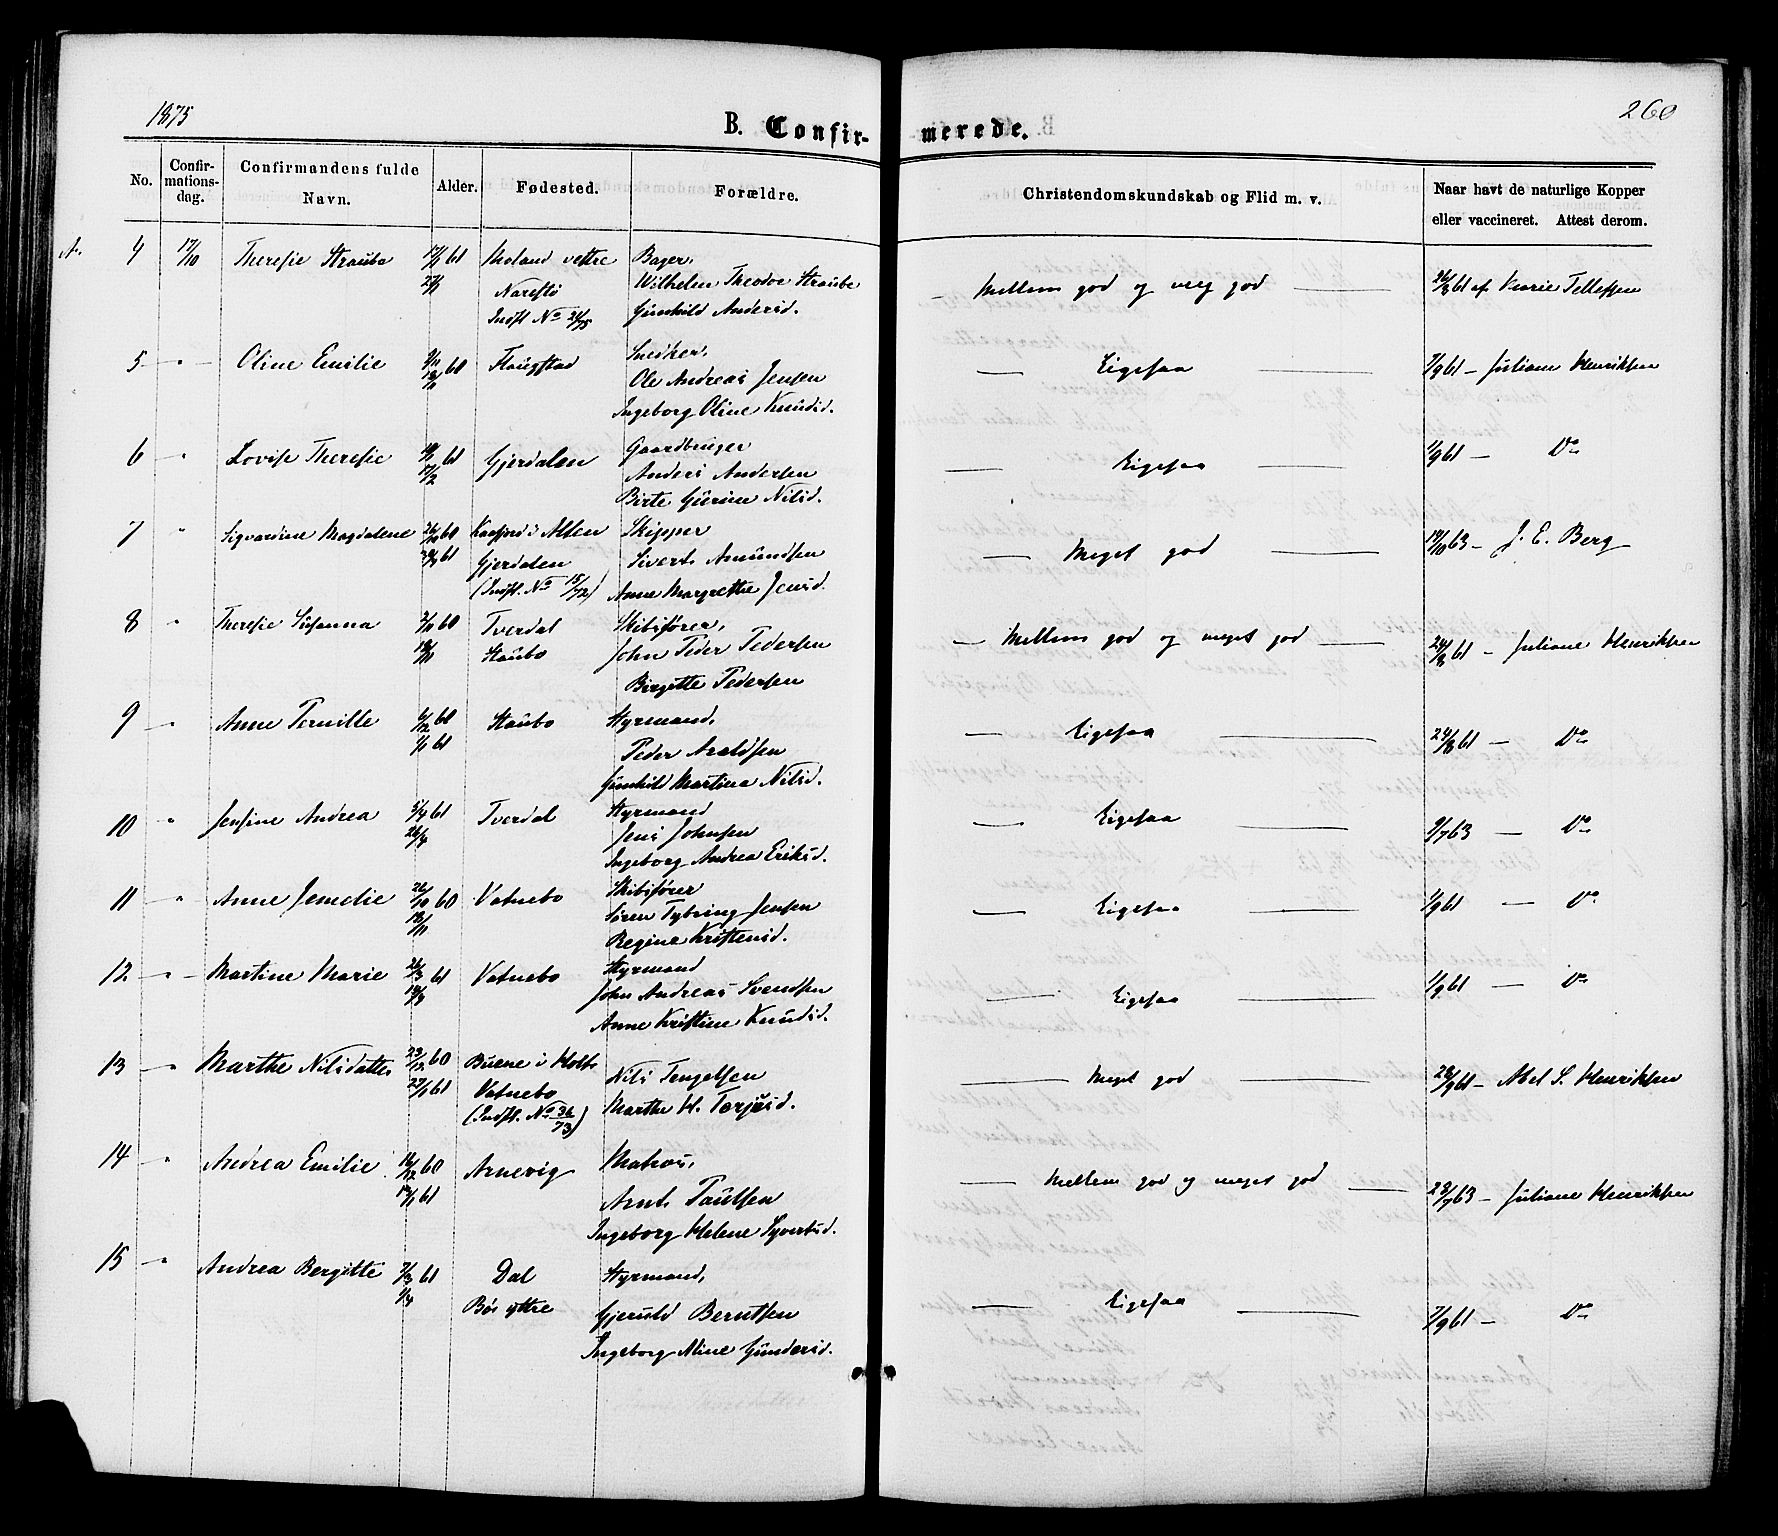 1875
260
B. Confir- merede.
No.
Confir-
mations-
dag.
Confirmandens fulde
Navn.
Alder.
Fødested.
Forældre.
Christendomskundskab og Flid m. v.
Naar havt de naturlige Kopper
eller vaccineret. Attest derom.
4 17/10 Theresie Straube 61 Moland vestre Bager,
Narestø Wilhelm Theodor Straube
Indfl. No 21/75 Gunhild Andersd.
Mellem god og meg god 26/8 61 af Marie Tellefsen
5 " Oline Emilie 60 Flaugstad Snedker,
Ole Andreas Jensen
Ingeborg Oline Knudsd.
Ligesaa 7/9 61 - Juliane Henriksen
6 " Lovise Theresie 61 Gjerdalen Gaardbruger
17/2 Anders Andersen
Birte Gurine Nilsd.
Ligesaa 1/9 61 - Do
7 " Sigvardine Magdalene 26/10 60 Kaafjord i Alten Skipper
61 Gjerdalen Sivert Amundsen
(Indfl. No 15/72) Anne Margrethe Jensd.
Meget god 14/10 63 - J. E. Berg
8 " Theresie Susanna 60 Tverdal Skibsfører,
18/11 Staubø John Peder Pedersen
Birgitte Pedersen
Mellem god og meget god 24/8 61 - Juliane Henriksen
9 " Anne Pernille 6/12 60 Staubø Styrmand,
1/1 61 Peder Aroldsen
Gunhild Martina Nilsd.
Ligesaa 24/8 61 - Do
10 " Jensine Andrea 5/4 61 Tverdal Styrmand
26/4 Jens Johnsen
Ingeborg Andrea Eriksd.
Ligesaa 9/7 63 - Do
11 " Anne Jemelie 26/10 60 Vatnebo Skibsfører
18/11 Søren Tybring Jensen
Regine Kristensd.
Ligesaa 1/9 61 - Do
12 " Martine Marie 26/3 61 Vatnebo Styrmand
John Andreas Svendsen
Anne Kristine Knudsd.
Ligesaa 1/9 61 - Do
13 " Marthe Nilsdatter 23/12 60 Buene i Holt Nils Tengelsen
27/1 61 Vatnebo Marthe H. Terjesd.
(Indfl. No 36/73)
Meget god 28/9 61 - Abel S. Henriksen
14 " Andrea Emilie 16/12 60 Arnevig Matros,
61 Arnt Paulsen
Ingeborg Helene Syvertsd.
Mellem god og meget god 23/7 63 - Juliane Henriksen
15 " Andrea Bergitte 7/3 61 Dal Styrmand,
1/4 Bos ytre Gjeruld Berntsen
Ingeborg Aline Gundersd.
Ligesaa 7/9 61 - Do